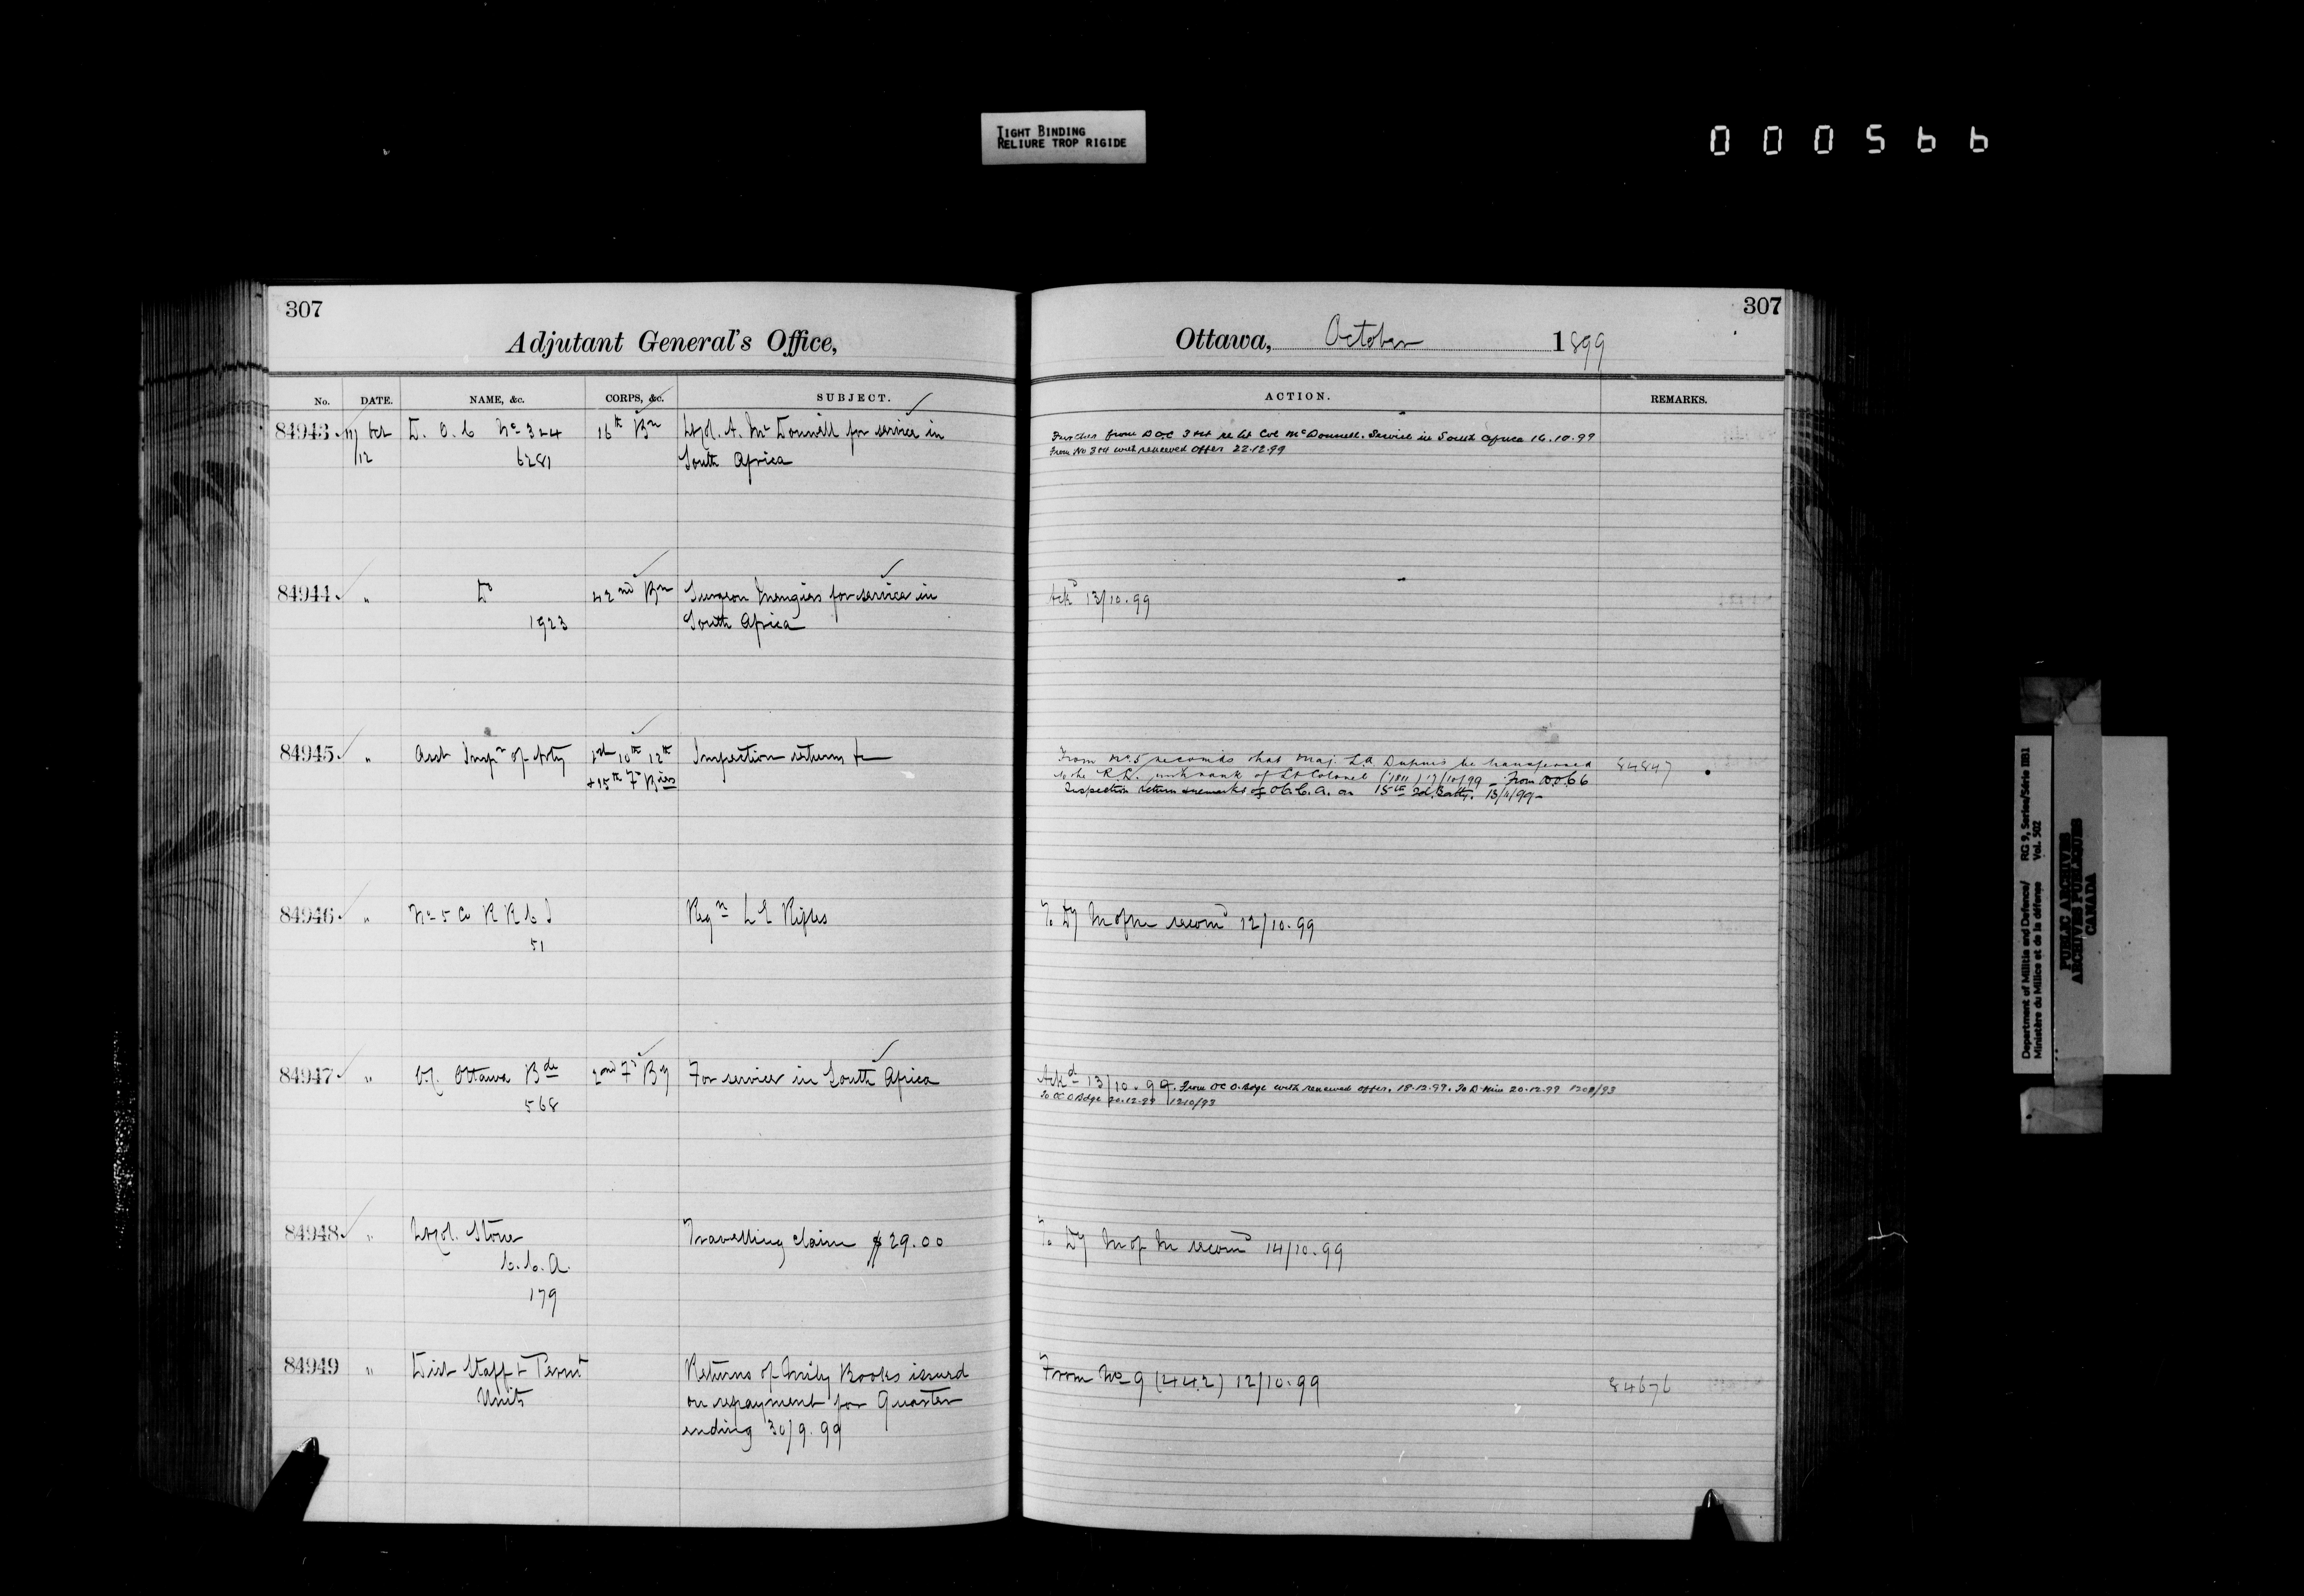 TIGHT BINDING
RELIURE TROP RIGIDE
000566
307
Adjutant General's Office,
No. DATE. NAME, &c. CORPS, &c. SUBJECT.
84943 11/12 Oct D. O. C No 3 & 4 16th Bn Lt Col. A. McDonnell for service in
6281 South Africa
84944 " Do 42nd Bn Surgeon for service in
1923 South Africa
84945 " Asst Inspr of Arty 1st 10th 12th Inspection returns &c
+ 15th Fd Bies
84946 " No 5 Co R R C I Regn L E Rifles
51
84947 " OC. Ottawa Bde 2nd Fd By For service in South Africa
568
84948 " Lt Col. Stone Travelling claim $29.00
C. C. A.
179
84949 " Dist Staff & Permt Returns of Books issued
Units on repayment for Quarter
ending 30/9.99
307
Ottawa, October 1899
ACTION. REMARKS.
Further from DOC 3&4 re Lt Col McDonnell. Service in South Africa 16.10.99
From No 3&4 with renewed offer 22.12.99
Ackd 13/10.99
From No. 5 recomds that Maj. Dupuis be transferred 84847
to the R.L. with rank of Lt Colonel 17/10/99 - From D.O.C 6
Inspection return & remarks of O.C.C.A. on 15th Fd. Batty. 13/11/99 -
To Dy M of M recomd 12/10.99
Ackd 13/10.99. From OC O. Bdge with renewed offer. 18.12.99. To D. Min 20.12.99 1208/93
To OC O Bdge 20.12.99 1210/93
To Dy M of M recomd 14/10.99
From No 9 (442) 12/10.99 84676
Department of Militia and Defence/ RG 9, Series/Série IIB1
Ministère du Milice et de la défense Vol. 502
PUBLIC ARCHIVES
ARCHIVES PUBLIQUES
CANADA